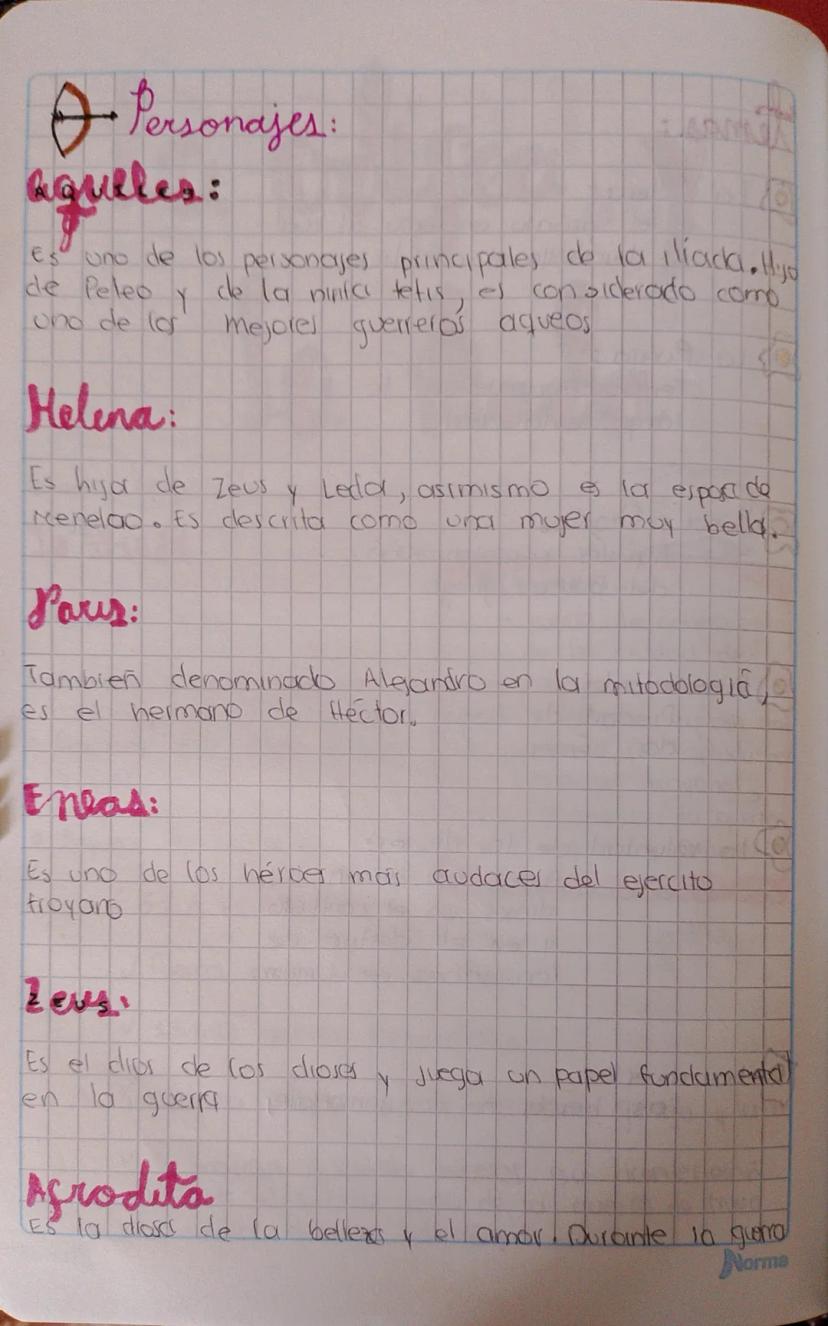 Personajes:
Aquiles:
Es uno de los personajes principales de la iliada. Hijo
de Peleo y de la ninfa tetis, es considerado como
uno de los mejores guerreros aqueos
Helena:
Es hija de Zeus y Leda, asimismo es la esposa de
Menelao. Es descrita como una mujer muy bella.
Paris:
Tambien denominado Alejandro en la mitodologia,
es el hermano de Héctor.
Eneas:
Es uno de los héroes más audaces del ejercito
troyano
Zeus:
Es el dios de los dioses y juega un papel fundamental
en la guerra
Afrodita
Es la diosa de la belleza y el amor. Durante la guerra
Norma